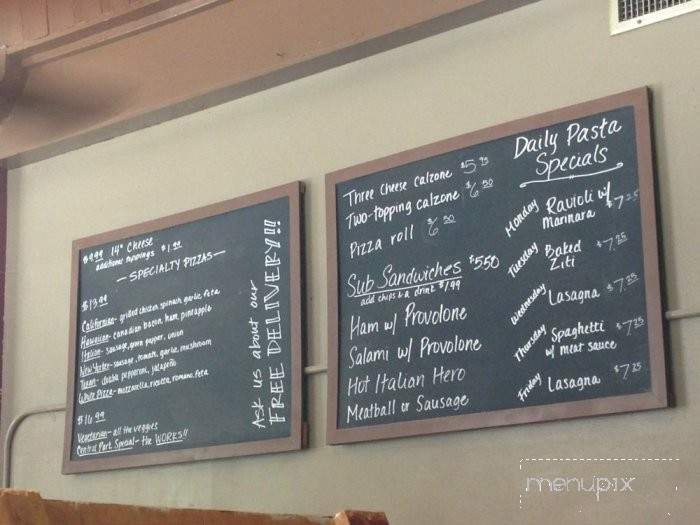 $9.99 14" Cheese
additional toppings $1.99
— SPECIALTY PIZZAS —
$13.99
Californian - grilled chicken spinach garlic feta
Hawaiian - canadian bacon, ham, pineapple
Italian - sausage, green pepper, onion
New Yorker - sausage, tomato, garlic, mushroom
Texan - double pepperoni, jalapeño
White Pizza - mozzarella, ricotta, romano, feta
$16.99
Vegetarian - all the veggies
Central Park Special - the WORKS!!
Ask us about our
FREE DELIVERY!!
Three cheese calzone $5.95
Two-topping calzone $6.50
Pizza roll $6.50
Sub Sandwiches $5.50
add chips & a drink $1.99
Ham w/ Provolone
Salami w/ Provolone
Hot Italian Hero
Meatball or Sausage
Daily Pasta
Specials
Monday Ravioli w/ $7.25
Marinara
Tuesday Baked $7.25
Ziti
Wednesday Lasagna $7.25
Thursday Spaghetti $7.25
w/ meat sauce
Friday Lasagna $7.25
menupix